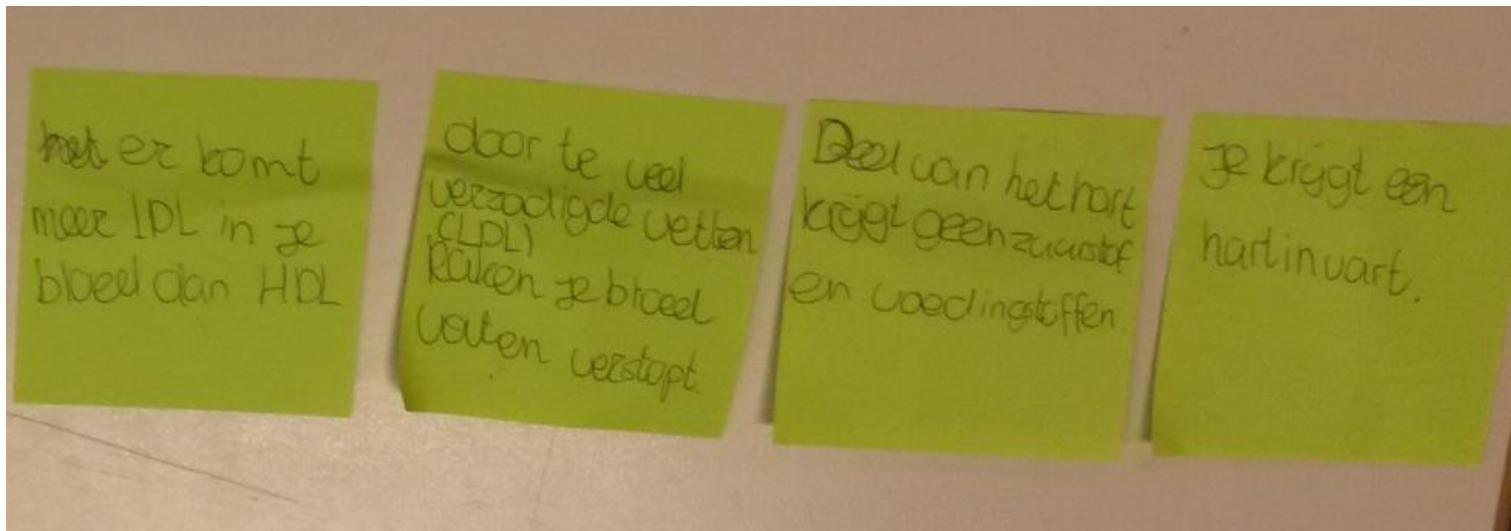 er komt
meer LDL in je
bloed dan HDL
door te veel
verzadigde vetten
(LDL)
Raken je bloed
vaten verstopt.
Deel van het hart
krijgt geen zuurstof
en voedingstoffen
je krijgt een
hartinvart.